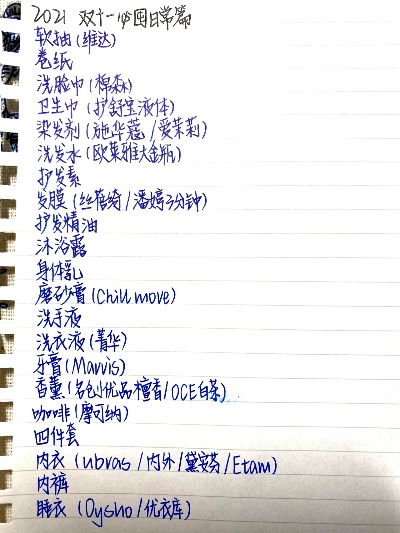 2021 双十一必囤日常篇
软抽(维达)
卷纸
洗脸巾(棉森)
卫生巾(护舒宝液体)
染发剂(施华蔻/爱茉莉)
洗发水(欧莱雅大金瓶)
护发素
发膜(丝蓓绮/潘婷3分钟)
护发精油
沐浴露
身体乳
磨砂膏(Chill move)
洗手液
洗衣液(菁华)
牙膏(Marvis)
香薰(名创优品檀香/OCE白茶)
咖啡(摩可纳)
四件套
内衣(ubras/内外/黛安芬/Etam)
内裤
睡衣(Oysho/优衣库)